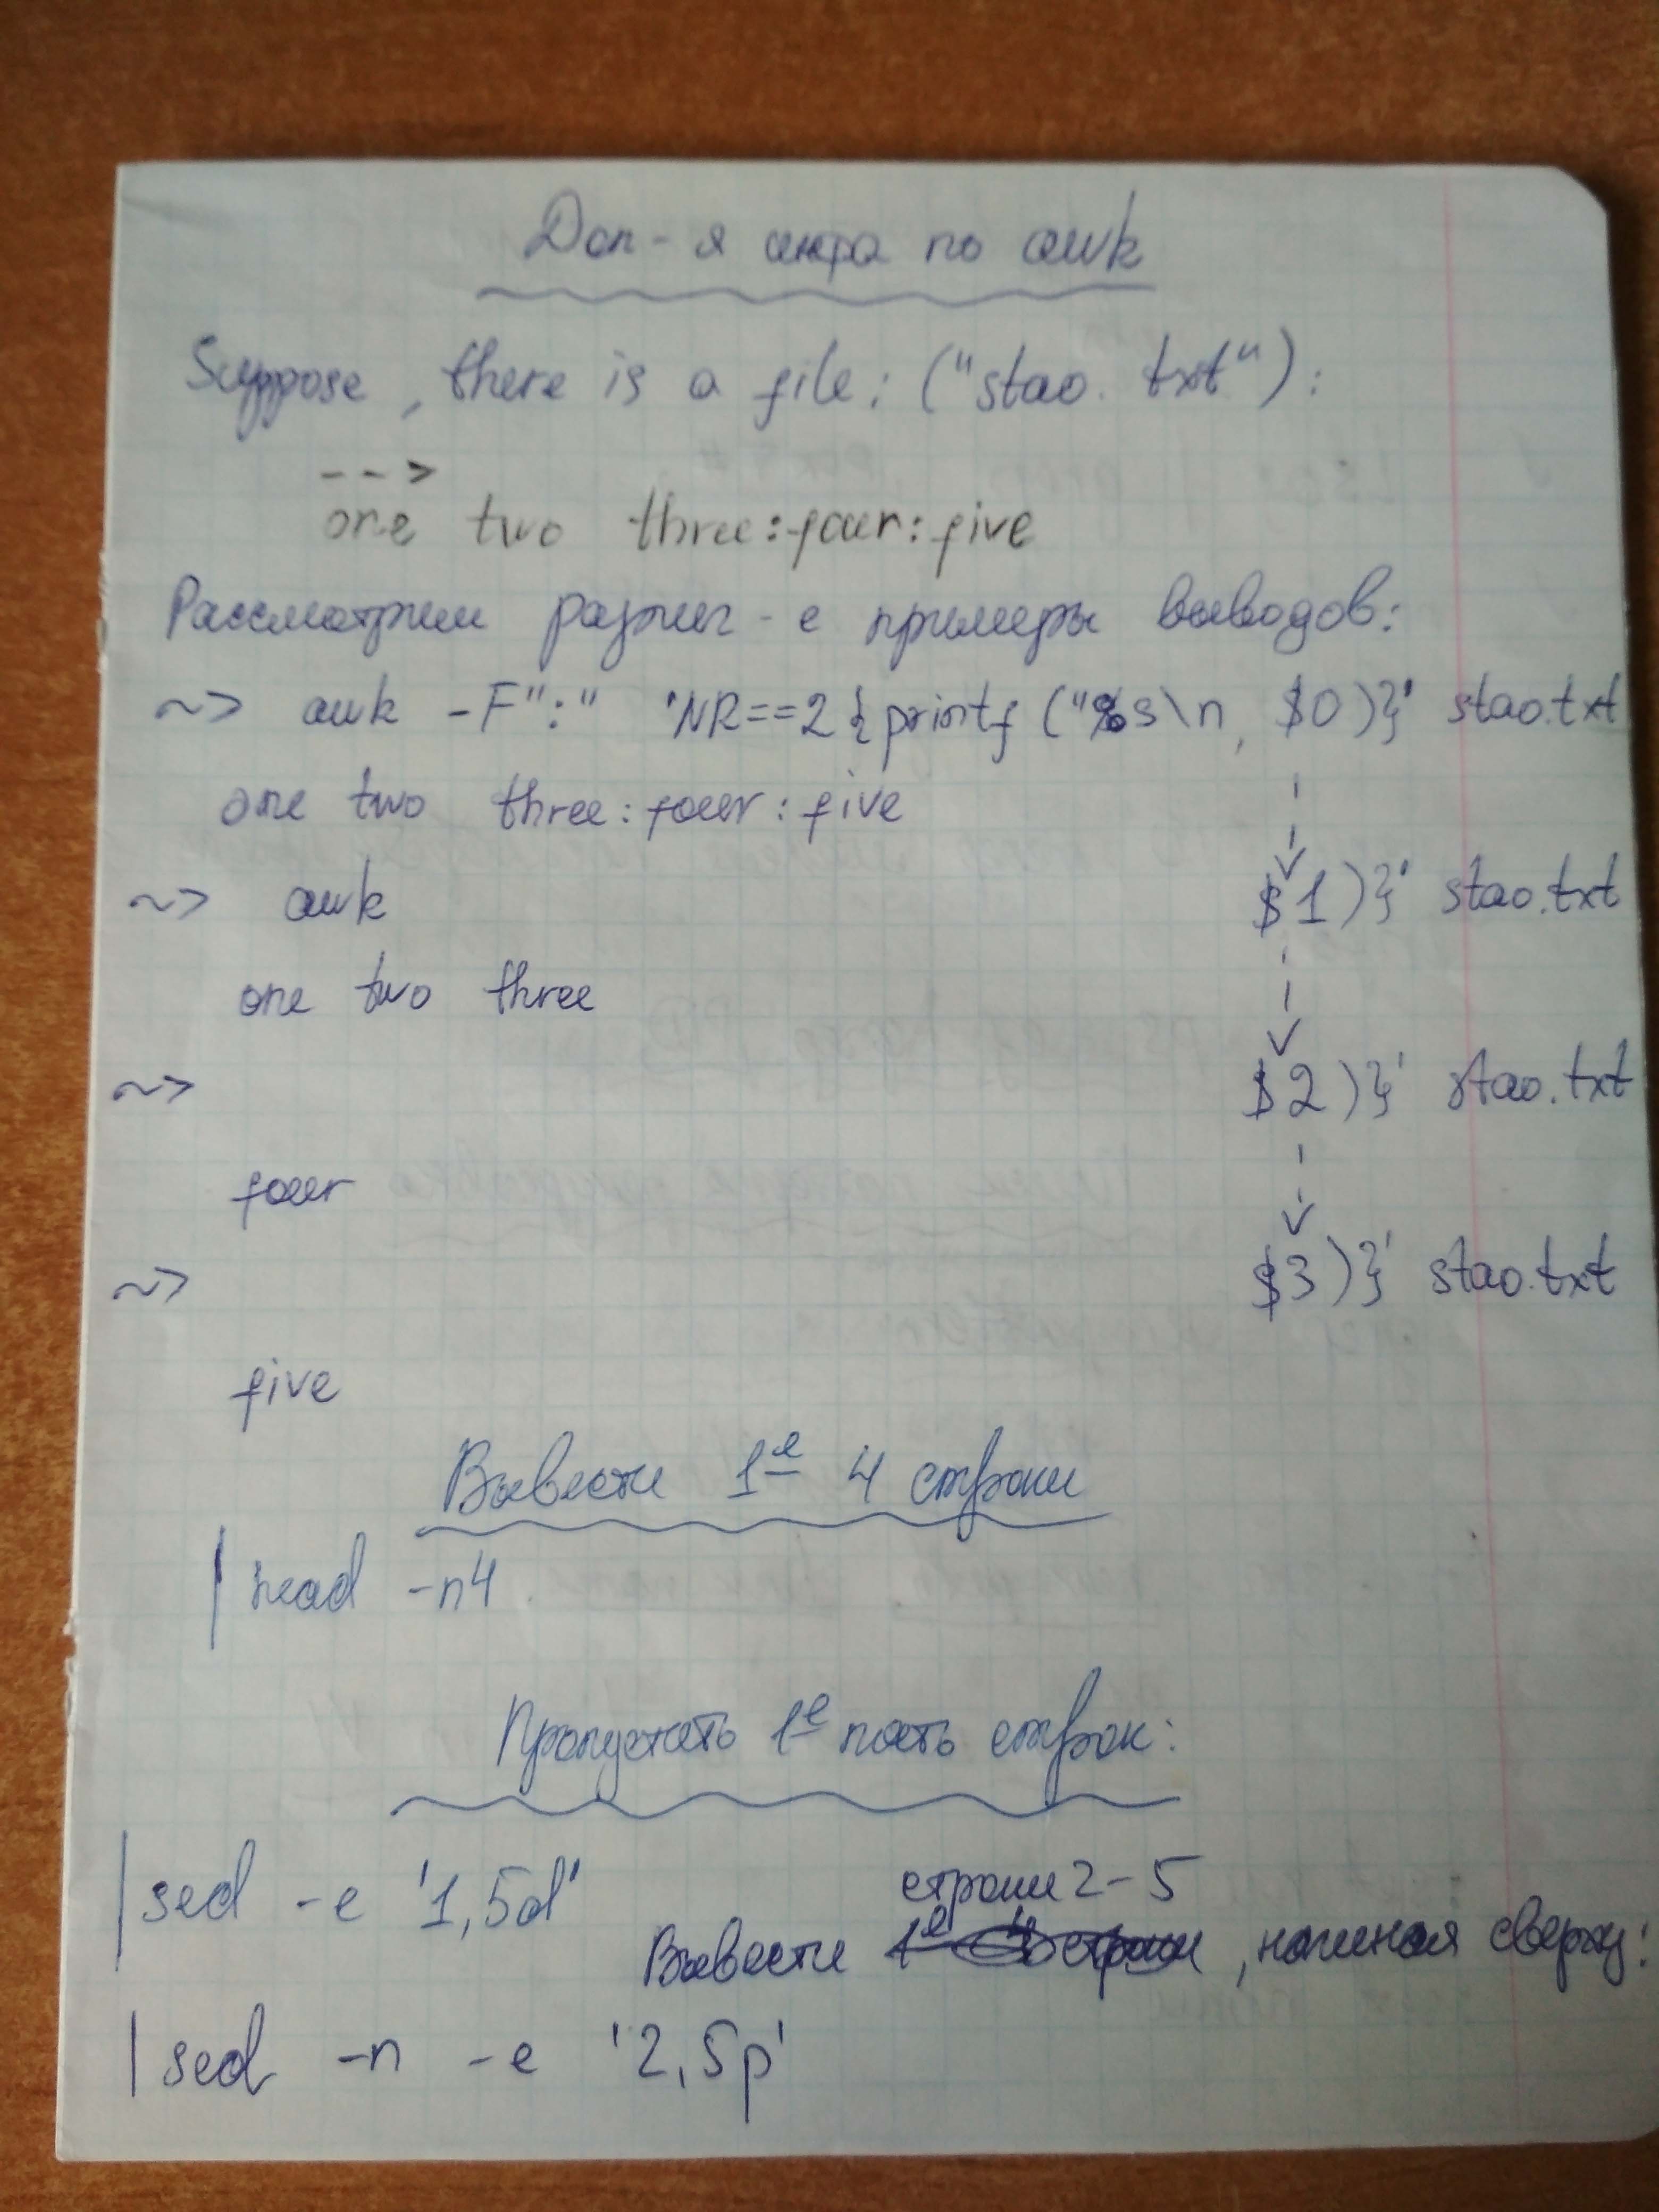 Доп-я инфа по awk
Suppose, there is a file: ("stao.txt"):
-->
one two three:four:five
Рассмотрим различ-е примеры выводов:
~> awk -F":" 'NR==2{printf("%s\n, $0)}' stao.txt
one two three:four:five
~> awk $1)}' stao.txt
one two three
~> $2)}' stao.txt
four
~> $3)}' stao.txt
five
Вывести 1е 4 строки
| head -n4
Пропустить 1е пять строк:
| sed -e '1,5d'
строки 2-5
Вывести , начиная сверху:
| sed -n -e '2,5p'